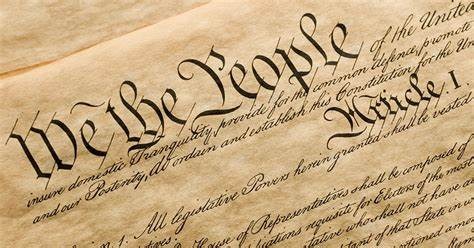 We the People of the United
insure domestic Tranquility, provide for the common defence, promote
and our Posterity, do ordain and establish this Constitution for the United
Article. I.
1. All legislative Powers herein granted shall be vested
House of Representatives shall be composed of
Qualifications requisite for Electors of the most
who shall not have
of that State in